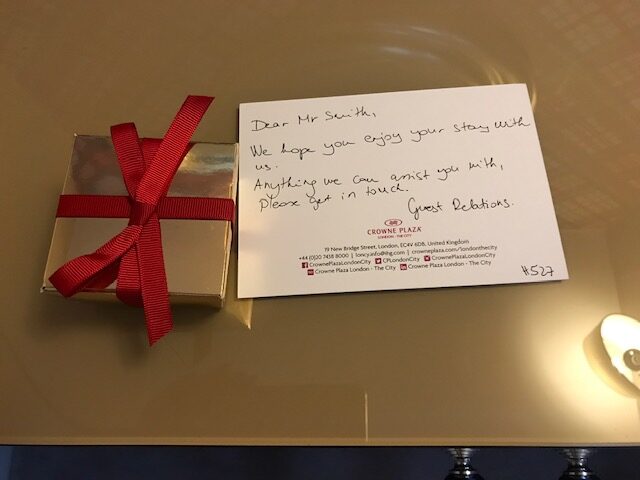 Dear Mr Smith,
We hope you enjoy your stay with
us.
Anything we can assist you with,
Please get in touch.
Guest Relations.
CROWNE PLAZA
LONDON - THE CITY
19 New Bridge Street, London, EC4V 6DB, United Kingdom
+44 (0)20 7438 8000 | loncy.info@ihg.com | crowneplaza.com/londonthecity
CrownePlazaLondonCity CPLondonCity CrownePlazaLondonCity
Crowne Plaza London - The City Crowne Plaza London - The City
#527